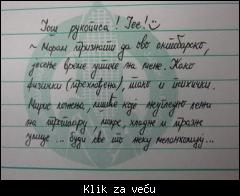 Још рукописа! Јее!
~ Морам признати да ово октобарско,
јесење време утиче на мене. Како
физички (прехлађена), тако и психички.
Мирис лишће које
на тротоару, хладне и празне
улице ... буди све то неку меланхолију...
Klik za veću